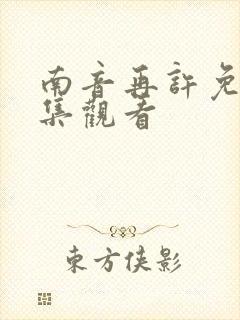 南音再許免
集觀看
東方俠影